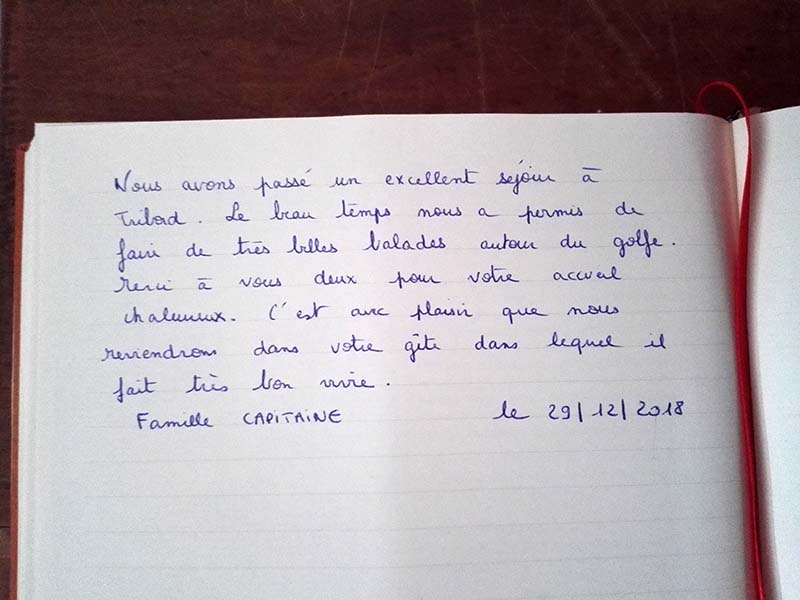 Nous avons passé un excellent séjour à
Tribord. Le beau temps nous a permis de
faire de très belles balades autour du golfe.
Merci à vous deux pour votre accueil
chaleureux. C'est avec plaisir que nous
reviendrons dans votre gîte dans lequel il
fait très bon vivre.
Famille CAPITAINE le 29/12/2018